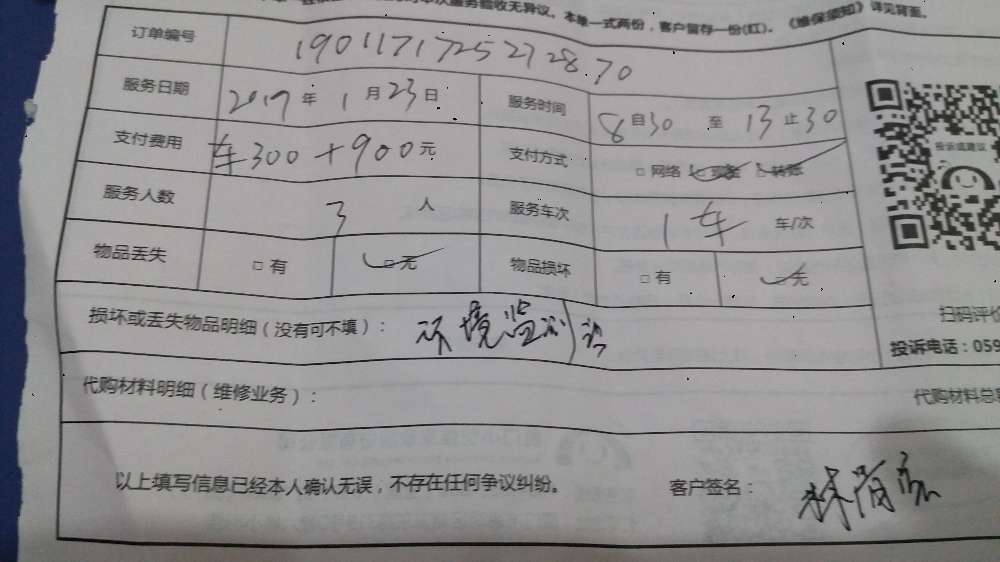 本次服务验收无异议。本单一式两份，客户留存一份(红)。《维保须知》详见背面。
订单编号 19011717252728.70
服务日期 2019年1月23日 服务时间 8自30至13止30
支付费用 车300+900元 支付方式 □网络 □现金 □转账
服务人数 3人 服务车次 1车 车/次
物品丢失 □有 □无 物品损坏 □有 □无
投诉或建议
损坏或丢失物品明细（没有可不填）： 环境监测
扫码评价
投诉电话：059
代购材料明细（维修业务）：
代购材料总
以上填写信息已经本人确认无误，不存在任何争议纠纷。 客户签名： 林